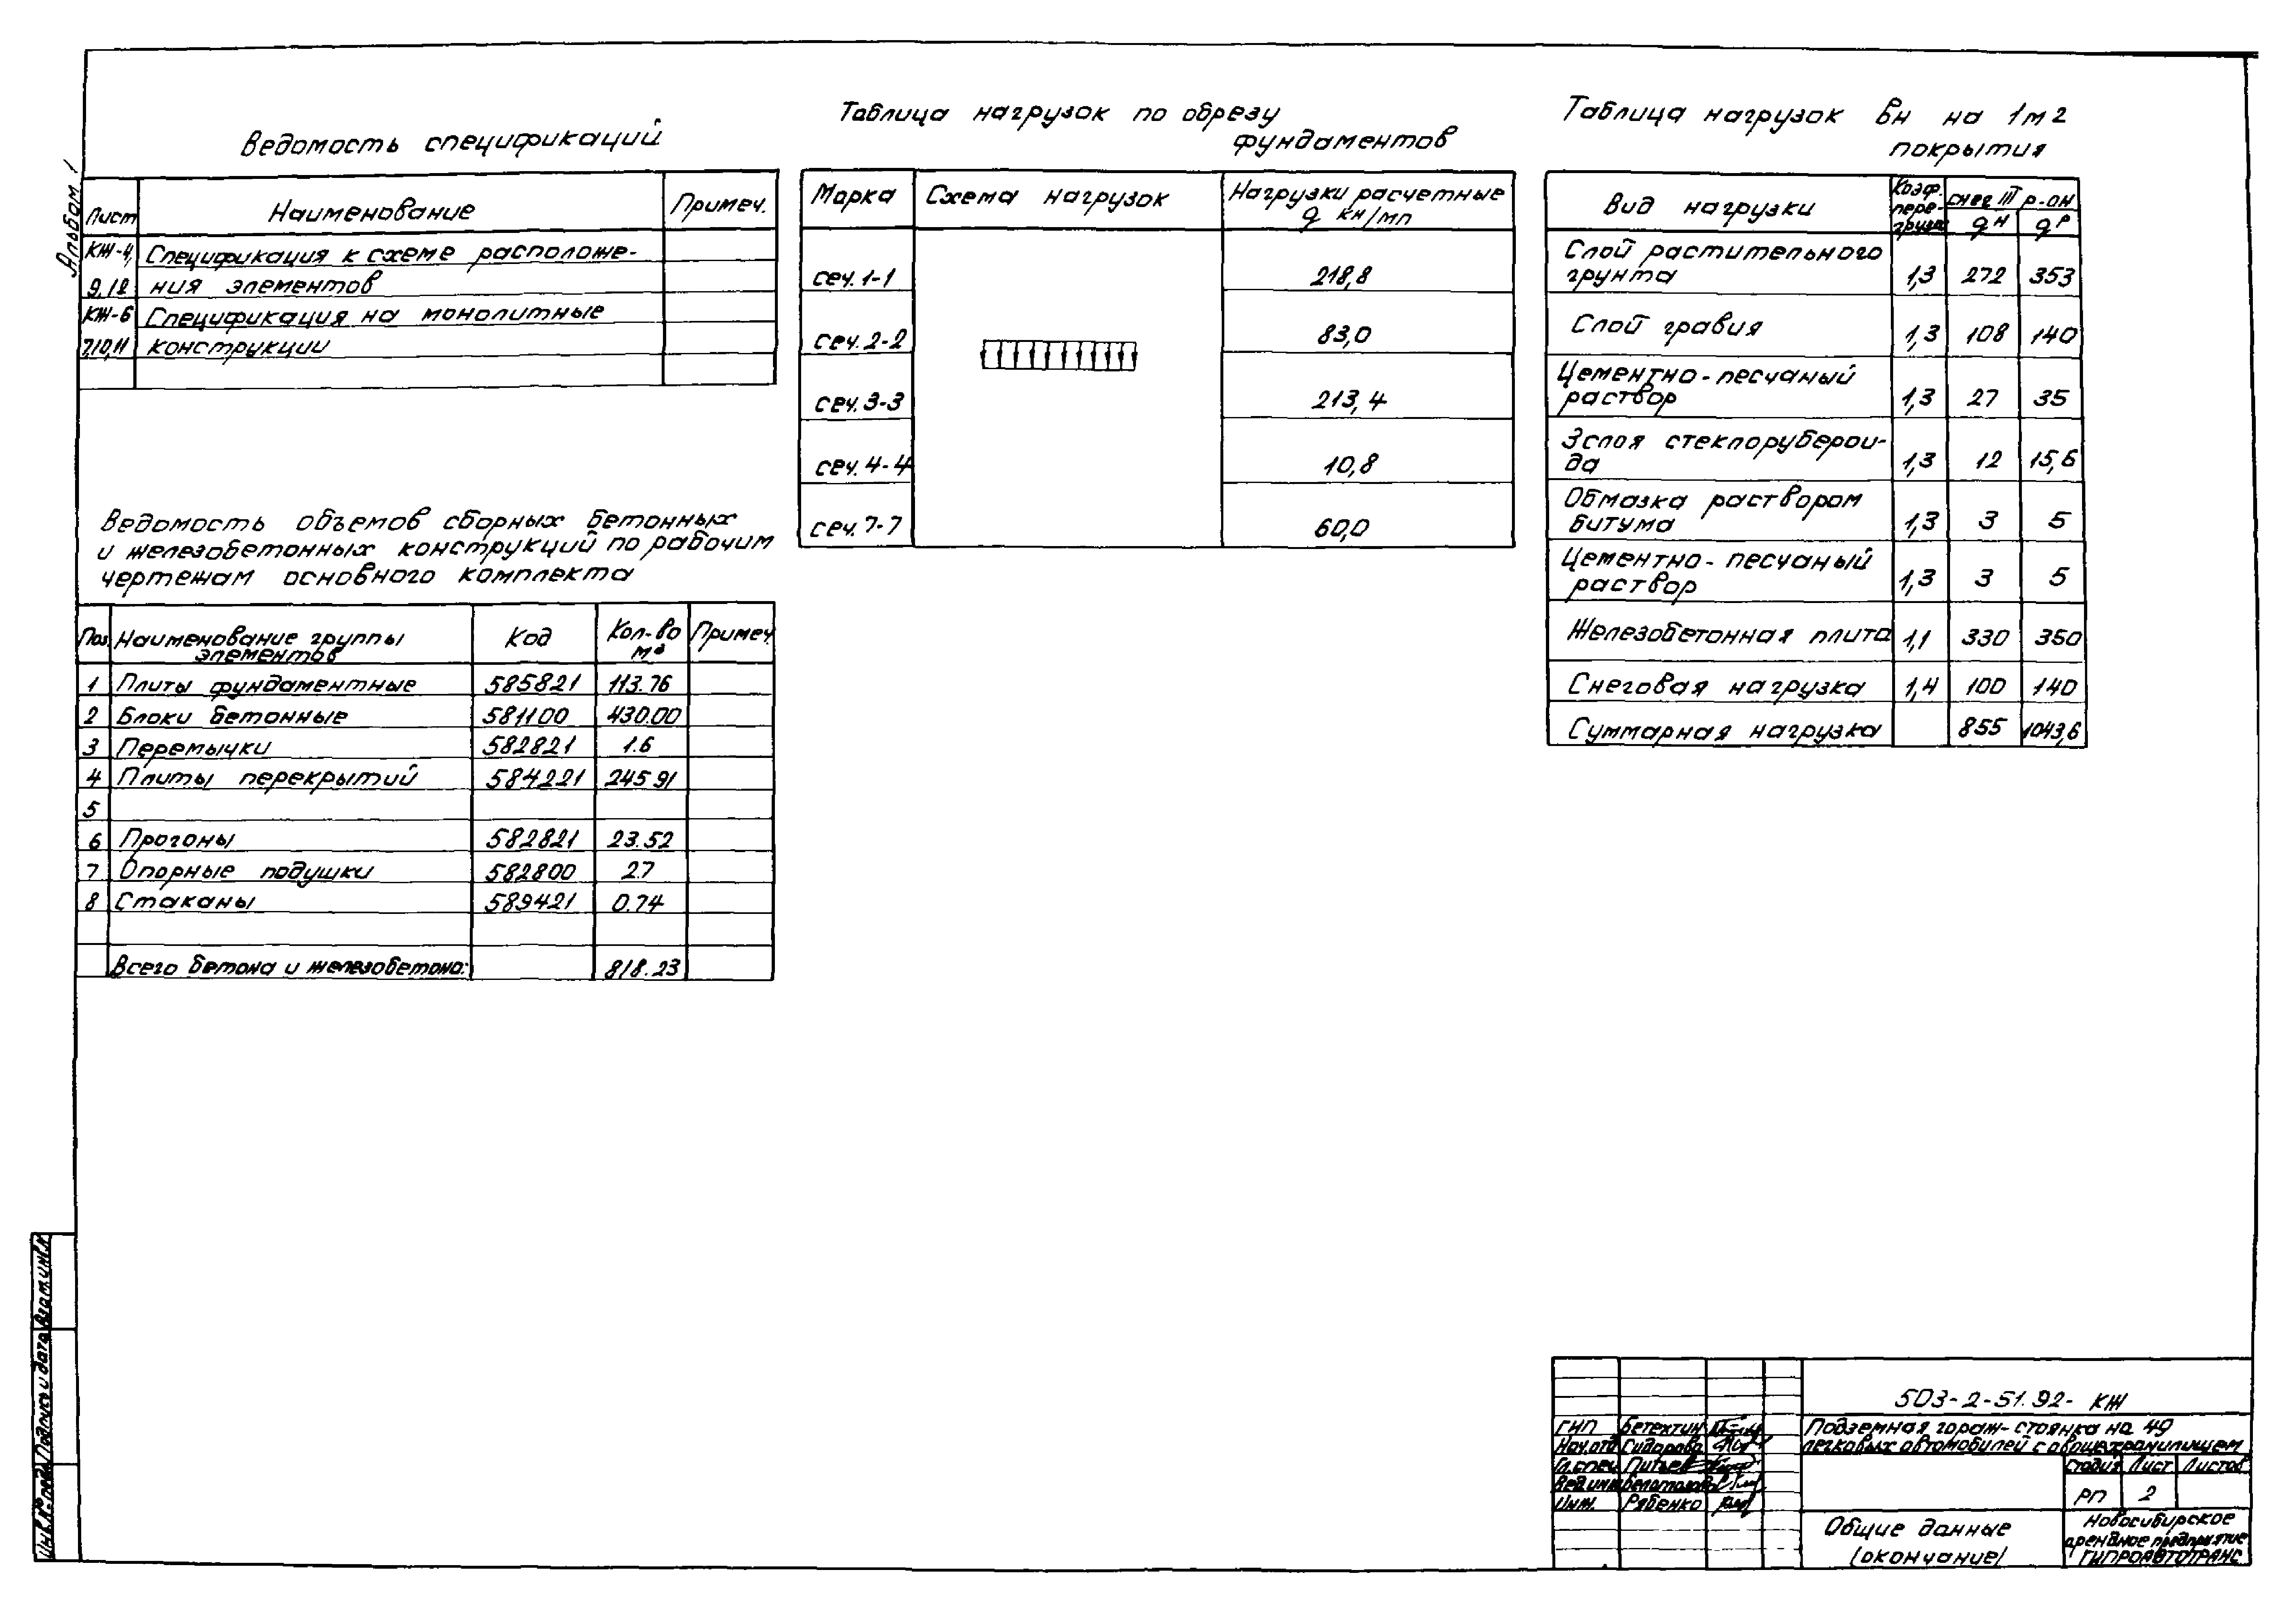 Альбом 1
Ведомость спецификаций
Лист Наименование Примеч.
КЖ-4, Спецификация к схеме расположе-
9,12 ния элементов
КЖ-6 Спецификация на монолитные
7,10,11 конструкции
Ведомость объемов сборных бетонных
и железобетонных конструкций по рабочим
чертежам основного комплекта
Поз. Наименование группы элементов Код Кол-во м³ Примеч.
1 Плиты фундаментные 585821 113.76
2 Блоки бетонные 581100 430.00
3 Перемычки 582821 1.6
4 Плиты перекрытий 584221 245.91
5
6 Прогоны 582821 23.52
7 Опорные подушки 582800 2.7
8 Стаканы 589421 0.74
Всего бетона и железобетона: 818.23
Таблица нагрузок по обрезу
фундаментов
Марка Схема нагрузок Нагрузки расчетные q кн/мп
сеч. 1-1 218,8
сеч. 2-2 83,0
сеч. 3-3 213,4
сеч. 4-4 10,8
сеч. 7-7 60,0
Таблица нагрузок вн на 1м2
покрытия
Вид нагрузки Коэф. пере-грузк снег III р-он
qн qр
Слой растительного
грунта 1,3 272 353
Слой гравия 1,3 108 140
Цементно-песчаный
раствор 1,3 27 35
3 слоя стеклоруберои-
да 1,3 12 15,6
Обмазка раствором
битума 1,3 3 5
Цементно-песчаный
раствор 1,3 3 5
Железобетонная плита 1,1 330 350
Снеговая нагрузка 1,4 100 140
Суммарная нагрузка 855 1043,6
Инв.№ подл. Подпись и дата Взам.инв.№
503-2-51.92- КЖ
ГИП Бетехтин
Нач.отд Сидорова
Гл.спец Питьев
Вед.инж
Инж. Рябенко
Подземная гараж-стоянка на 49
легковых автомобилей с овощехранилищем
Стадия Лист Листов
РП 2
Общие данные
(окончание)
Новосибирское
арендное предприятие
ГИПРОАВТОТРАНС